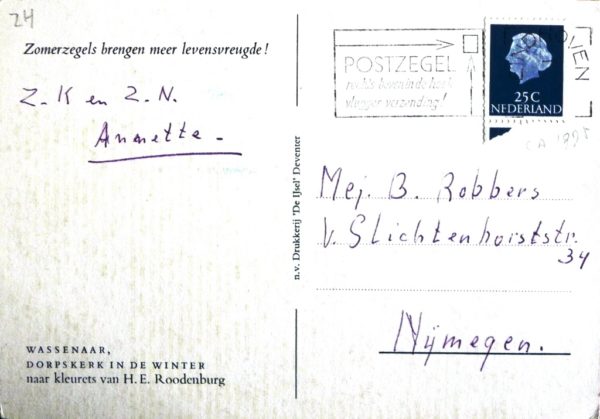 24
Zomerzegels brengen meer levensvreugde!
Z.K en Z.N.
Annette.
WASSENAAR,
DORPSKERK IN DE WINTER
naar kleurets van H. E. Roodenburg
n.v. Drukkerij 'De IJsel' Deventer
POSTZEGEL
rechts bovenin de hoek
vlugger verzending!
25C
NEDERLAND
Mej. B. Robbers
v. Slichtenhorststr.
34
Nijmegen.